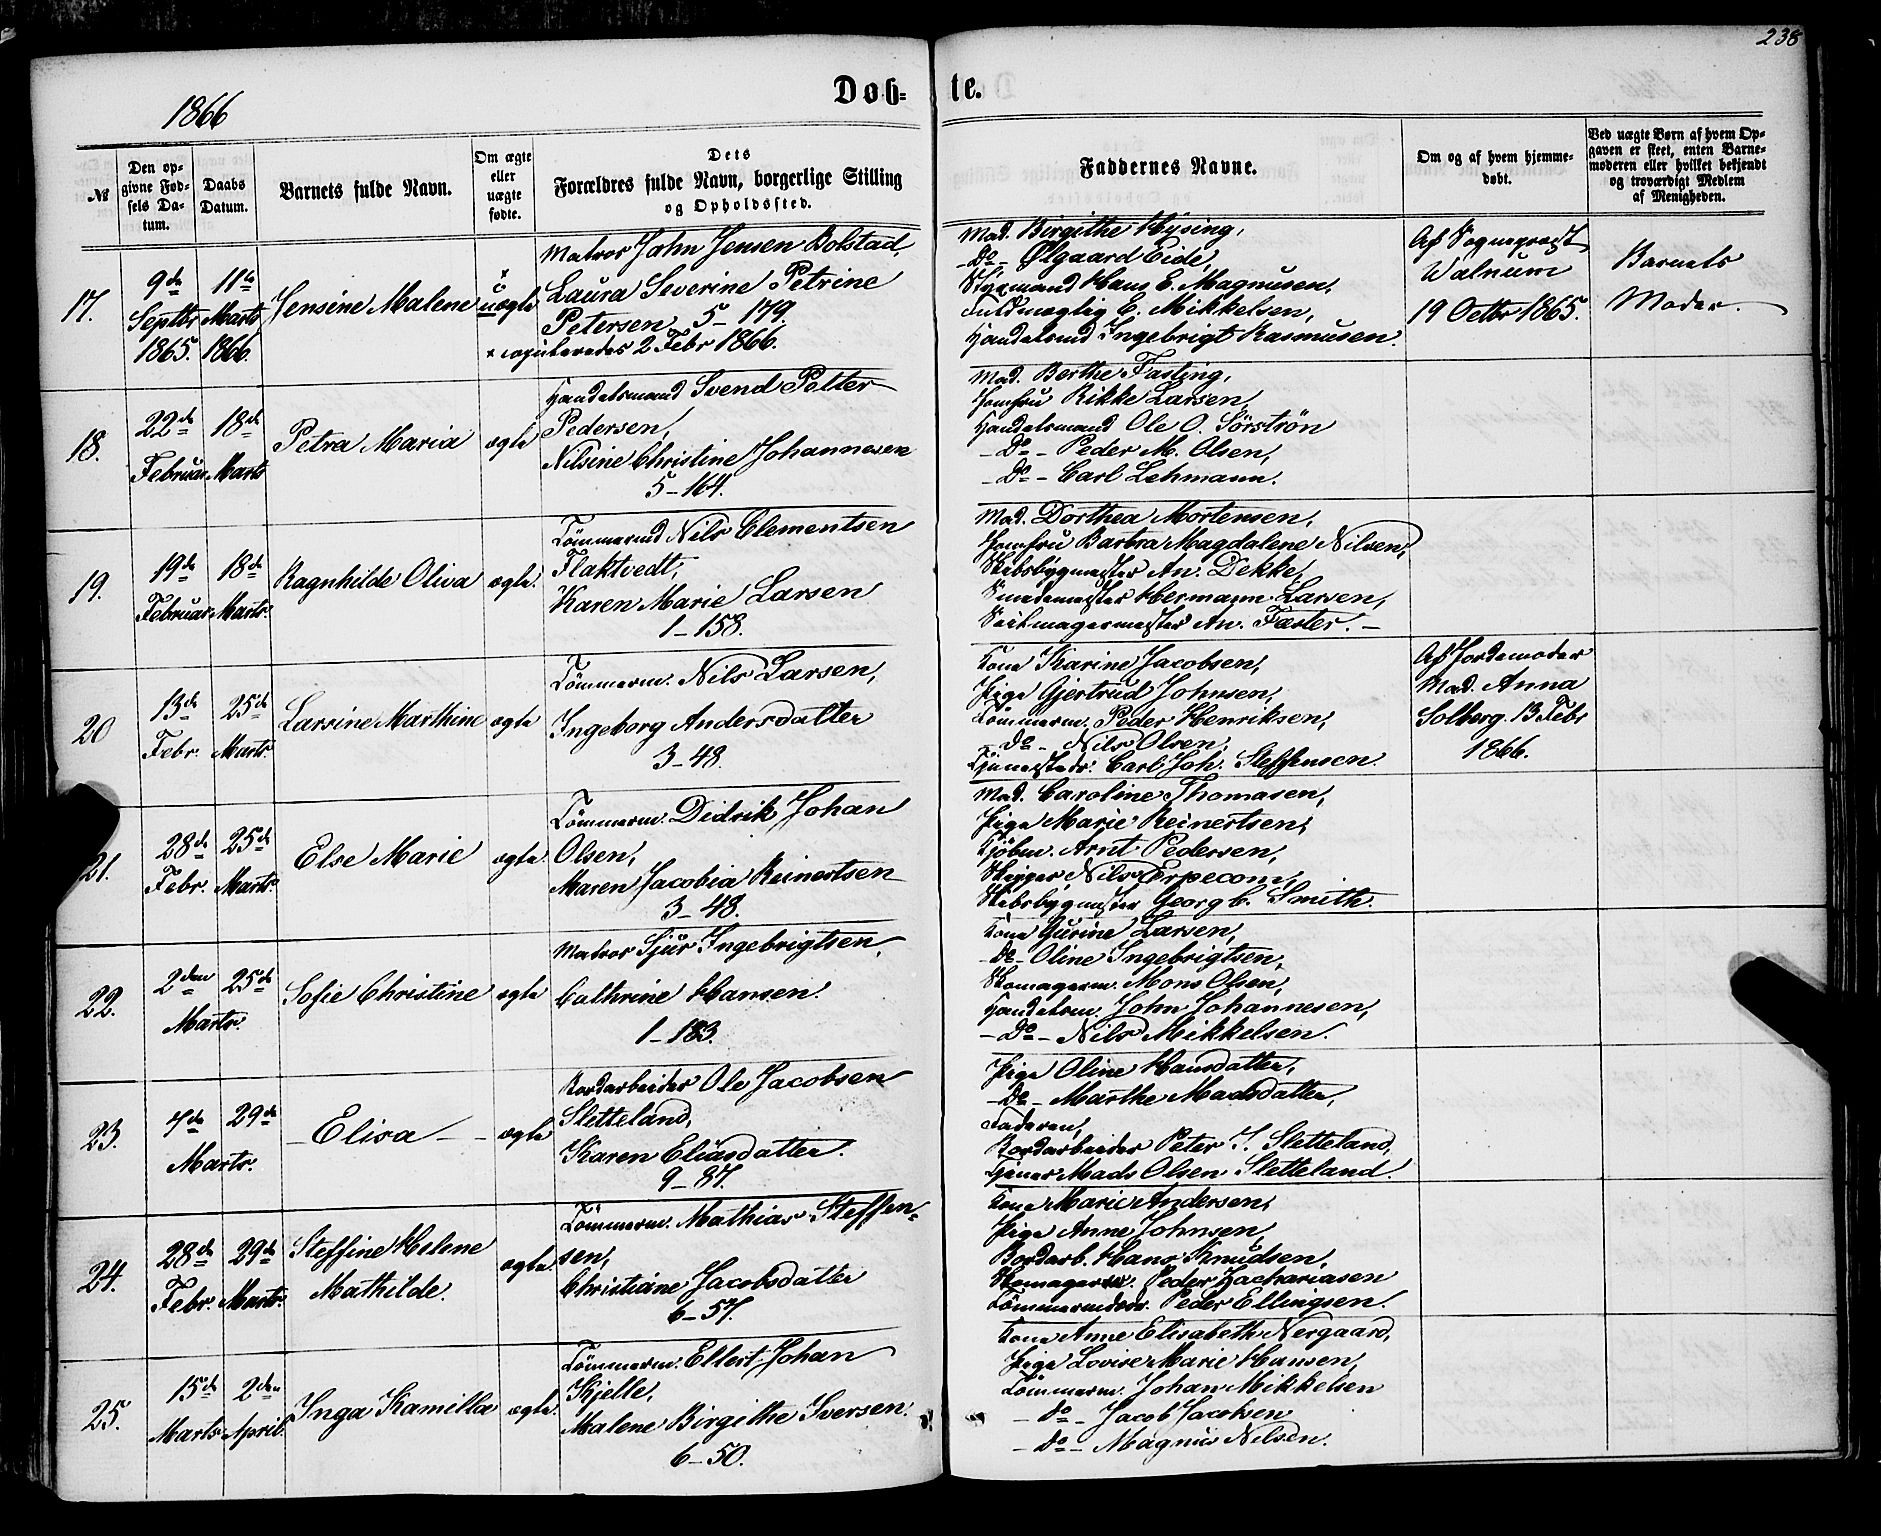 238
1866
Døb- te.
№
Den opgivne Fødsels Datum.
Daabs Datum.
Barnets fulde Navn.
Om ægte eller uægte fødte.
Dets Forældres fulde Navn, borgerlige Stilling og Opholdssted.
Faddernes Navne.
Om og af hvem hjemmedøbt.
Ved uægte Børn af hvem Opgaven er skeet, enten Barnemoderen eller hvilket bekjendt og troværdigt Medlem af Menigheden.
17.
9de Septbr 1865.
11te Marts 1866.
Jensine Malene
uægte
Matros John Jensen Bolstad,
Laura Severine Petrine
Petersen 5-179.
× copuleredes 2 Febr 1866.
Mad. Birgithe Hysing,
Do Ølgaard Eide,
Styrmand Hans E. Magnusen,
Fuldmægtig E. Mikkelsen,
Handelsmd Ingebrigt Rasmusen.
Af Sognepræst
Walnum
19 Octbr 1865.
Barnets
Moder.
18.
22de Februar
18de Marts
Petra Maria
ægte
Handelsmand Svend Petter
Pedersen,
Nilsine Christine Johannesen
5-164.
Mad. Berthe Fasting,
Jomfru Rikke Larsen,
Handelsmand Ole O. Sörströn
- Do - Peder M. Olsen,
- Do - Carl Lehmann.
19.
19de Februar
18de Marts.
Ragnhilde Oliva
ægte.
Tömmermd Nils Clementsen
Flaktvedt,
Karen Marie Larsen
1-158.
Mad. Dorthea Mortensen,
Jomfru Barbra Magdalene Nilsen,
Skibsbygmester An. Dekke,
Smedemester Hermann Larsen,
Seilmagermester An. Fæster.
20
13de Febr.
25de Marts.
Larsine Marthine
ægte
Tömmerm. Nils Larsen,
Ingeborg Andersdatter
3-48.
Kone Karine Jacobsen,
Pige Gjertrud Johnsen,
Tömmerm. Peder Henriksen,
- do - Nils Olsen,
Carl Joh. Steffensen.
Af Jordemoder
Mad. Anna
Solberg. 13 Febr
1866.
21.
28de Febr.
25de Marts.
Else Marie
ægte.
Tömmerm. Didrik Johan
Olsen,
Maren Jacobia Reinertsen
3-48.
Mad. Caroline Thomasen,
Pige Marie Reinertsen,
Kjöbm. Arnt Pedersen,
Skipper Nils Erpecom,
Skibsbygmester Georg C. Smith.
22.
2den Marts.
25de
Sofie Christine
ægte
Matros Sjür Ingebrigtsen,
Cathrine Hansen.
1-183.
Kone Gurine Larsen,
- Do - Oline Ingebrigtsen,
Skomagerm. Mons Olsen,
Handelsm. John Johannesen,
- Do - Nils Mikkelsen.
23.
7de Marts.
29de
- Elisa -
ægte
Bordarbeider Ole Jacobsen
Sletteland,
Karen Eliasdatter.
9-87.
Pige Oline Hansdatter,
- Do - Marthe Madsdatter,
Faderen,
Bordarbeider Peter J. Sletteland,
Tjener Mads Olsen Sletteland.
24.
28de Febr.
29de Marts.
Steffine Helene
Mathilde.
ægte.
Tömmerm. Mathias Steffen-
sen,
Christiane Jacobsdatter
6-57.
Kone Marie Andersen,
Pige Anne Johnsen,
Bordarb. Hans Knudsen,
Skomager Peder Zachariasen
Peder Ellingsen.
25.
15de Marts
2den April.
Inga Kamilla
ægte.
Tömmerm. Ellert Johan
Kjelle,
Malene Birgithe Iversen.
6-50.
Kone Anne Elisabeth Nergaard,
Pige Lovise Marie Hansen,
Tömmerm. Johan Mikkelsen
- Do - Jacob Jacobsen
- Do - Magnus Nilsen.